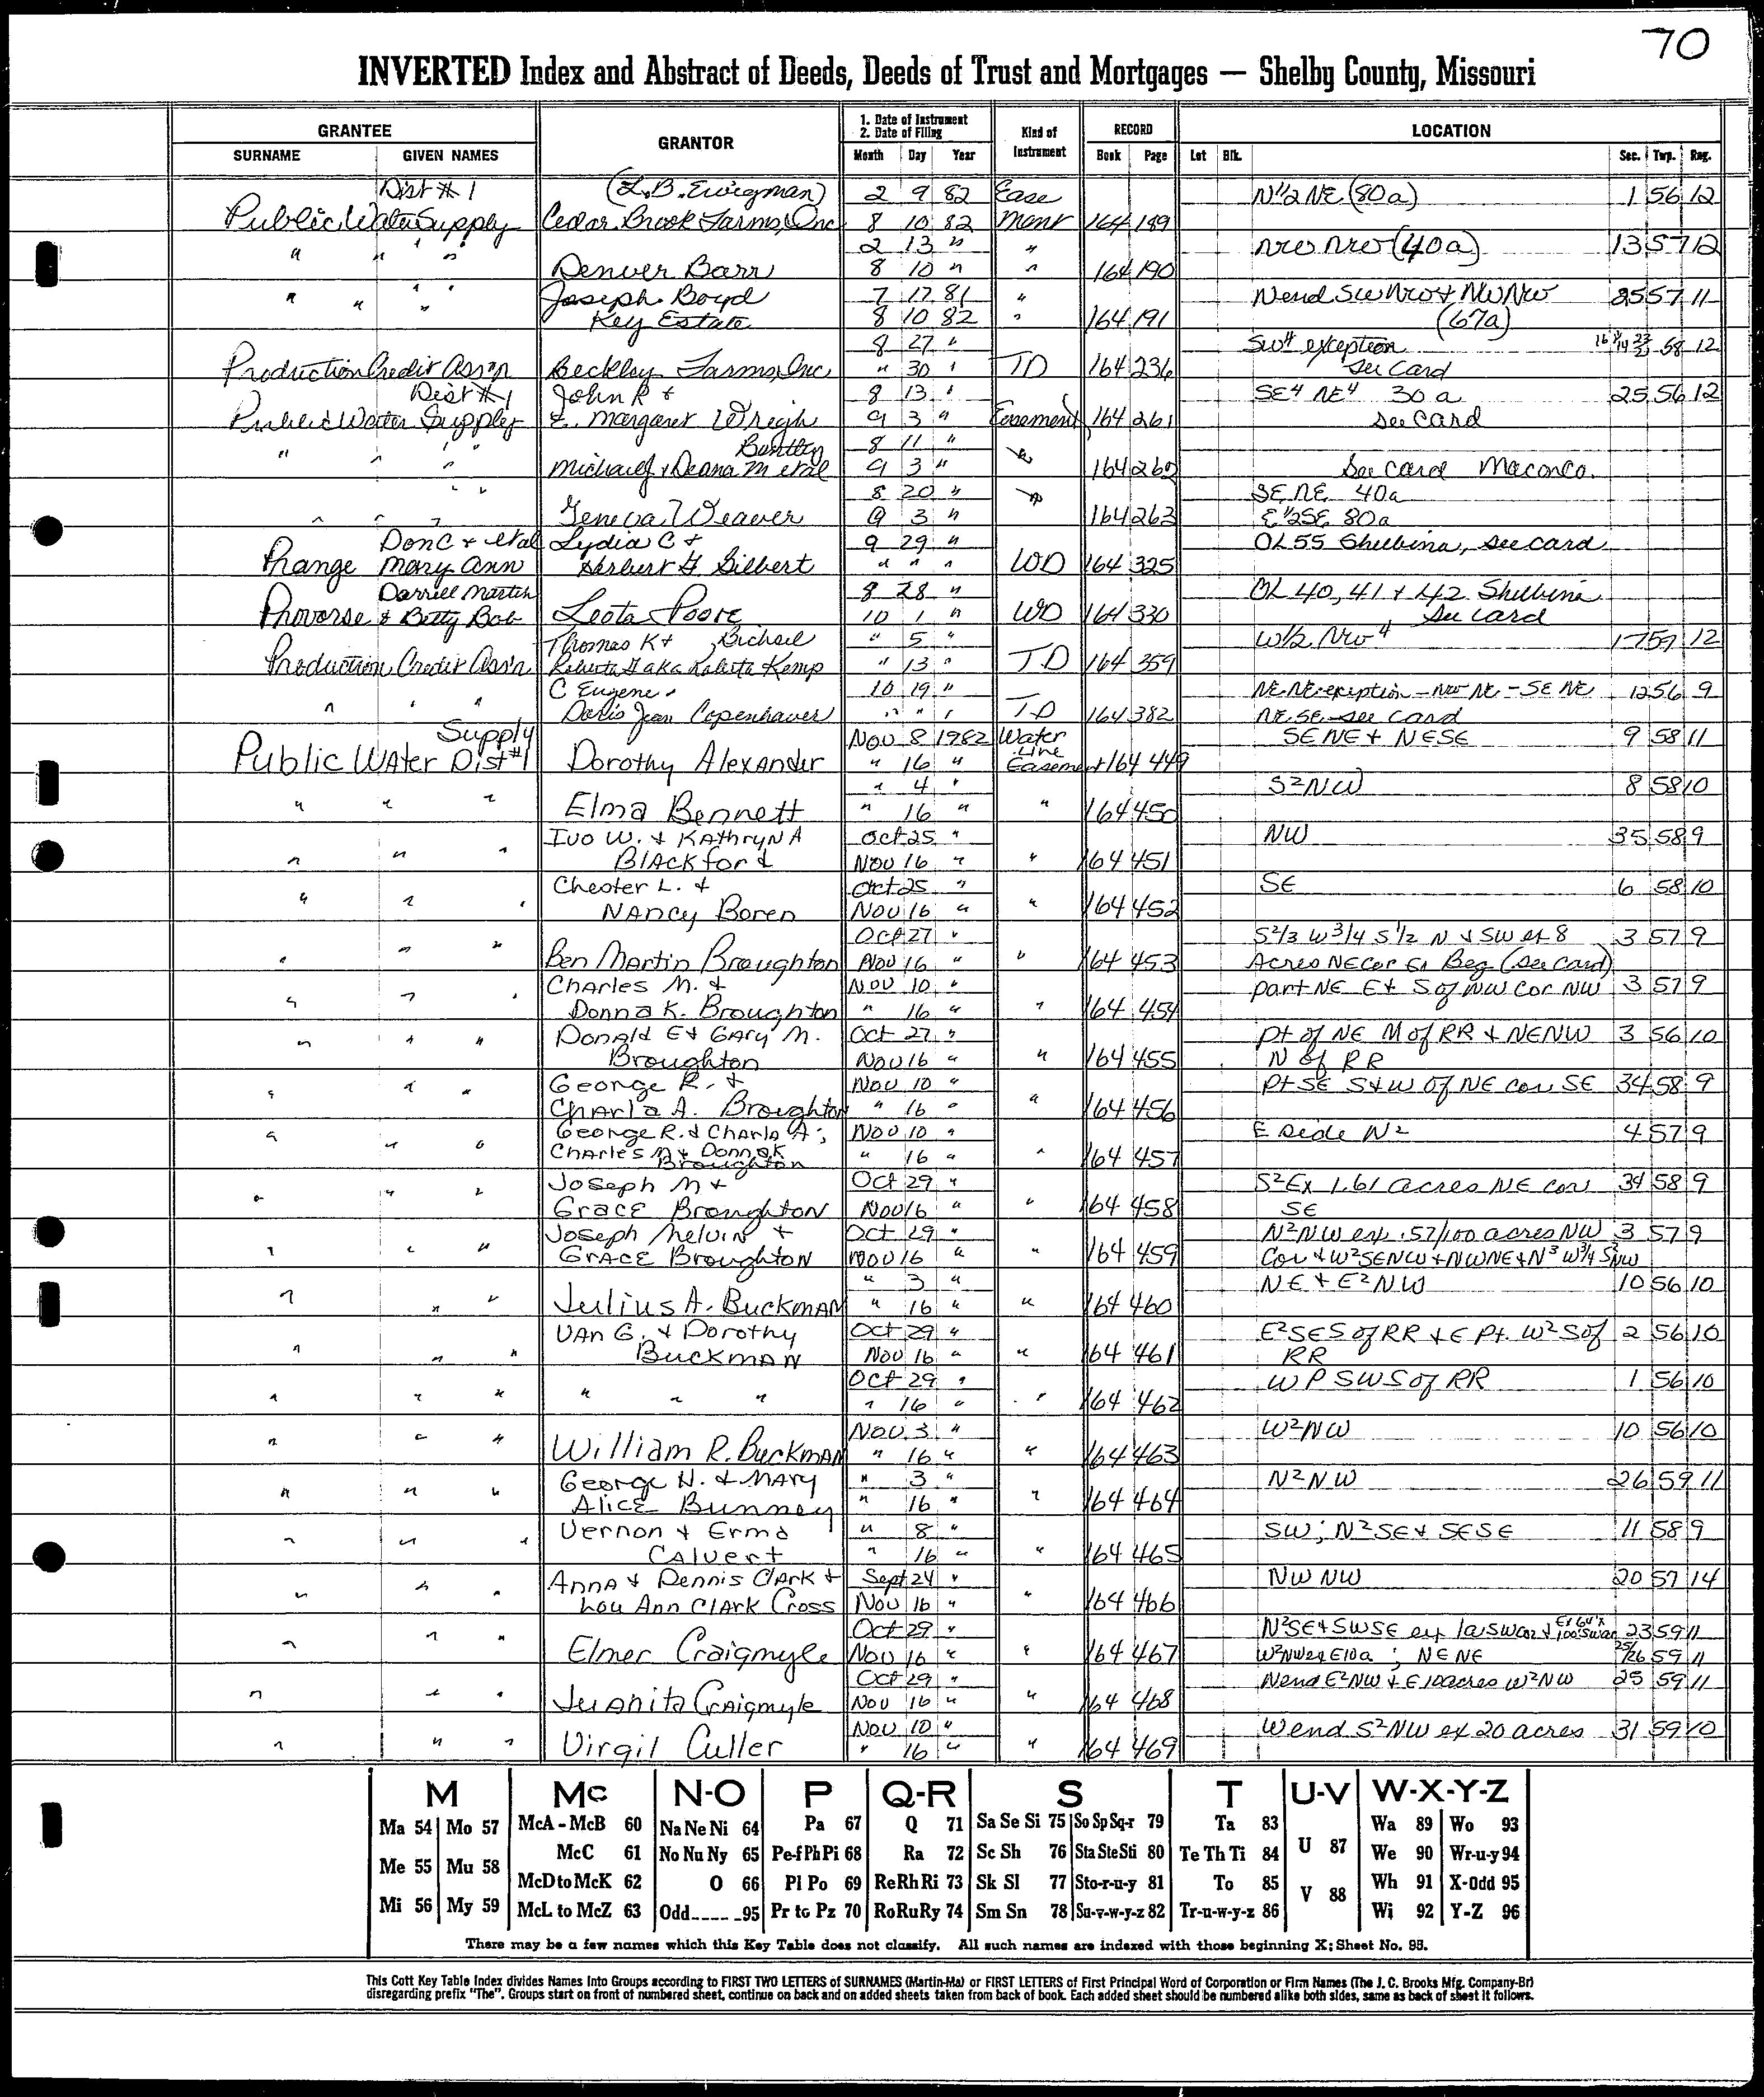 70
INVERTED Index and Abstract of Deeds, Deeds of Trust and Mortgages — Shelby County, Missouri
GRANTEE GRANTOR 1. Date of Instrument 2. Date of Filing Kind of Instrument RECORD LOCATION
SURNAME GIVEN NAMES Month Day Year Book Page Lot Blk. Sec. Twp. Rng.
Dist # 1 (L.B. Ewigman) 2 9 82 Ease N 1/2 NE (80a) 1 56 12
Public Water Supply Cedar Brook Farms, Inc 8 10 82 ment 164 189
" " " 2 13 " " NW NW (40a) 13 57 12
Denver Barr 8 10 " " 164 190
" " " Joseph Boyd 7 17 81 " N end SW NW + NW NW 25 57 11
Key Estate 8 10 82 " 164 191 (67a)
8 27 " SW4 exception 58 12
Production Credit Ass'n Beckley Farms, Inc " 30 " TD 164 236 See Card
Dist #1 John R + 8 13 " SE4 NE4 30 a 25 56 12
Public Water Supply E. Margaret Wreigh 9 3 " Easement 164 261 See Card
" " " Bentley 8 11 "
Michael J + Deana M etal 9 3 " " 164 262 See Card Macon Co.
" " 8 20 " " SE NE 40a
" " " Geneva Weaver 9 3 " 164 263 E 1/2 SE 80a
Don C + etal Lydia C + 9 29 " OL 55 Shelbina, see card
Prange Mary Ann Herbert H Gilbert " " " WD 164 325
Darriel Martin 8 28 " OL 40, 41 + 42 Shelbina
Provorse & Betty Bob Leota Poore 10 1 " WD 164 330 See Card
Thomas K + Bichsel " 5 " W 1/2 NW4 17 59 12
Production Credit Ass'n Roberta H aka Roberta Kemp " 13 " TD 164 359
C Eugene + 10 19 " NE NE exception - NW NE - SE NE 12 56 9
" " " Doris Jean Copenhaver " " " TD 164 382 NE SE see card
Supply Nov 8 1982 Water Line SE NE + NESE 9 58 11
Public Water Dist #1 Dorothy Alexander " 16 " Easement 164 449
" 4 " S2NW 8 58 10
" " " Elma Bennett " 16 " " 164 450
Ivo W. + Kathryn A Oct 25 " NW 35 58 9
" " " Blackford Nov 16 " " 164 451
Chester L. + Oct 25 " SE 6 58 10
" " " Nancy Boren Nov 16 " " 164 452
Oct 27 " S 2/3 W 3/4 S 1/2 N + SW ex 8 3 57 9
" " " Ben Martin Broughton Nov 16 " " 164 453 Acres NE Cor Ex Beg (see card)
Charles M. + Nov 10 " part NE E + S of NW Cor NW 3 57 9
" " " Donna K. Broughton " 16 " " 164 454
Donald E + Gary M. Oct 27 " pt of NE M of RR + NENW 3 56 10
" " " Broughton Nov 16 " " 164 455 N of RR
George R. + Nov 10 " pt SE S+W of NE cor SE 34 58 9
" " " Charla A. Broughton " 16 " " 164 456
George R. + Charla A; Nov 10 " E side N2 4 57 9
" " " Charles M + Donna K Broughton " 16 " " 164 457
Joseph M + Oct 29 " S2 Ex 1.61 acres NE cor 34 58 9
" " " Grace Broughton Nov 16 " " 164 458 SE
Joseph Melvin + Oct 29 " N2NW ex .57/100 acres NW 3 57 9
" " " Grace Broughton Nov 16 " " 164 459 Cor + W2SENW + NWNE + N3 W3/4 S2NW
" 3 " NE + E2NW 10 56 10
" " " Julius A. Buckman " 16 " " 164 460
Van G. + Dorothy Oct 29 " E2SE S of RR + E Pt. W2 S of 2 56 10
" " " Buckman Nov 16 " " 164 461 RR
Oct 29 " W P SW S of RR 1 56 10
" " " " " " " 16 " " 164 462
Nov 3 " W2NW 10 56 10
" " " William R. Buckman " 16 " " 164 463
George H. + Mary " 3 " N2NW 26 59 11
" " " Alice Bunney " 16 " " 164 464
Vernon + Erma " 8 " SW; N2SE + SESE 11 58 9
" " " Calvert " 16 " " 164 465
Anna + Dennis Clark + Sept 24 " NW NW 20 57 14
" " " Lou Ann Clark Cross Nov 16 " " 164 466
Oct 29 " N2SE + SWSE ex 1a SW cor + 23 59 11
" " " Elmer Craigmyle Nov 16 " " 164 467 W2NW ex E10a ; NENE 25/26 59 11
Oct 29 " N end E2NW + E 10 acres W2NW 25 59 11
" " " Juanita Craigmyle Nov 16 " " 164 468
Nov 10 " W end S2NW ex 20 acres 31 59 10
" " " Virgil Culler " 16 " " 164 469
M Mc N-O P Q-R S T U-V W-X-Y-Z
Ma 54 Mo 57 McA - McB 60 Na Ne Ni 64 Pa 67 Q 71 Sa Se Si 75 So Sp Sq-r 79 Ta 83 U 87 Wa 89 Wo 93
Me 55 Mu 58 McC 61 No Nu Ny 65 Pe-f Ph Pi 68 Ra 72 Sc Sh 76 Sta Ste Sti 80 Te Th Ti 84 V 88 We 90 Wr-u-y 94
McD to McK 62 O 66 Pl Po 69 Re Rh Ri 73 Sk Sl 77 Sto-r-u-y 81 To 85 Wh 91 X-Odd 95
Mi 56 My 59 McL to McZ 63 Odd 95 Pr to Pz 70 Ro Ru Ry 74 Sm Sn 78 Su-v-w-y-z 82 Tr-u-w-y-z 86 Wi 92 Y-Z 96
There may be a few names which this Key Table does not classify. All such names are indexed with those beginning X; Sheet No. 95.
This Cott Key Table Index divides Names Into Groups according to FIRST TWO LETTERS of SURNAMES (Martin-Ma) or FIRST LETTERS of First Principal Word of Corporation or Firm Names (The J. C. Brooks Mfg. Company-Br)
disregarding prefix "The". Groups start on front of numbered sheet, continue on back and on added sheets taken from back of book. Each added sheet should be numbered alike both sides, same as back of sheet it follows.